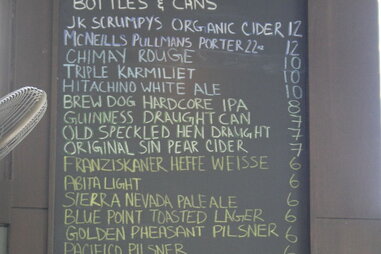 BOTTLES & CANS
JK SCRUMPYS ORGANIC CIDER 12
MCNEILLS PULLMANS PORTER 22oz 12
CHIMAY ROUGE 10
TRIPLE KARMILIET 10
HITACHINO WHITE ALE 10
BREW DOG HARDCORE IPA 8
GUINNESS DRAUGHT CAN 7
OLD SPECKLED HEN DRAUGHT 7
ORIGINAL SIN PEAR CIDER 7
FRANZISKANER HEFFE WEISSE 6
ABITA LIGHT 6
SIERRA NEVADA PALE ALE 6
BLUE POINT TOASTED LAGER 6
GOLDEN PHEASANT PILSNER 6
PACIFICO PILSNER 6